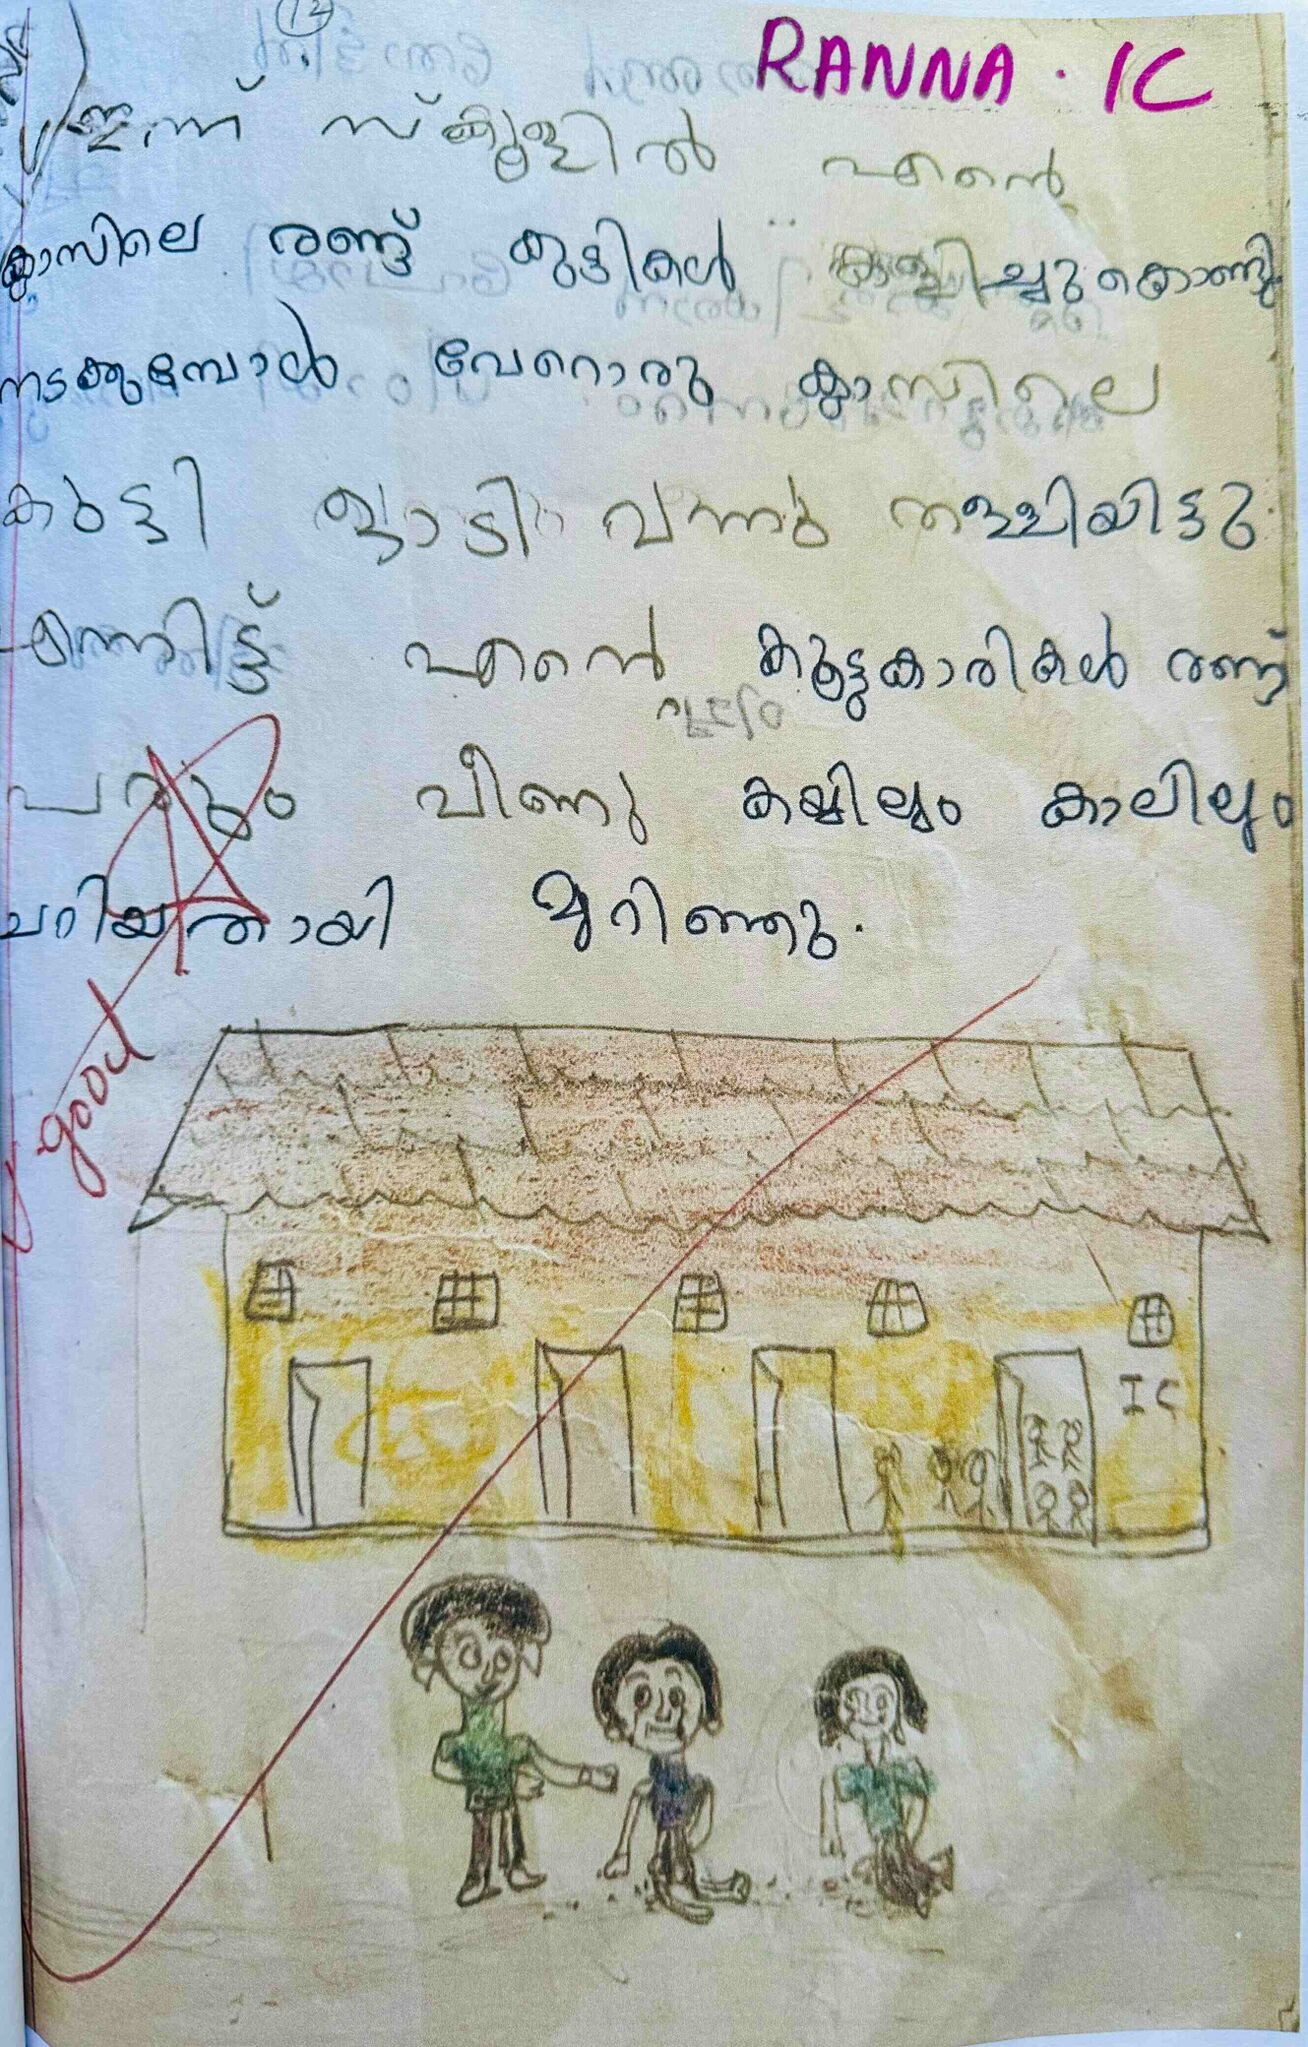 12
RANNA . 1C
ഇന്ന് സ്കൂളിൽ എന്റെ
ക്ലാസിലെ രണ്ട് കുട്ടികൾ കളിച്ചുകൊണ്ടു
നടക്കുമ്പോൾ വേറൊരു ക്ലാസിലെ
കുട്ടി ഓടി വന്നു തള്ളിയിട്ടു.
എന്നിട്ട് എന്റെ കൂട്ടുകാരികൾ രണ്ട്
പരും വീണു കയ്യിലും കാലിലും
ചറിയതായി മുറിഞ്ഞു.
good
I C